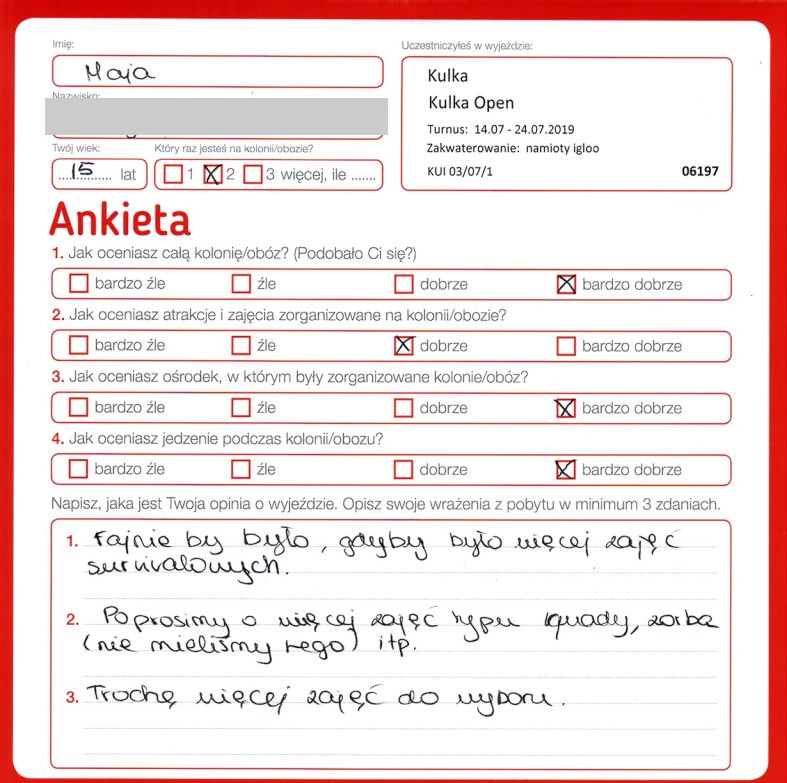 Imię:
Maja
Uczestniczyłeś w wyjeździe:
Kulka
Kulka Open
Turnus: 14.07 - 24.07.2019
Zakwaterowanie: namioty igloo
KUI 03/07/1 06197
Nazwisko:
Twój wiek:
15 lat
Który raz jesteś na kolonii/obozie?
1 2 3 więcej, ile .......
Ankieta
1. Jak oceniasz całą kolonię/obóz? (Podobało Ci się?)
bardzo źle źle dobrze bardzo dobrze
2. Jak oceniasz atrakcje i zajęcia zorganizowane na kolonii/obozie?
bardzo źle źle dobrze bardzo dobrze
3. Jak oceniasz ośrodek, w którym były zorganizowane kolonie/obóz?
bardzo źle źle dobrze bardzo dobrze
4. Jak oceniasz jedzenie podczas kolonii/obozu?
bardzo źle źle dobrze bardzo dobrze
Napisz, jaka jest Twoja opinia o wyjeździe. Opisz swoje wrażenia z pobytu w minimum 3 zdaniach.
1. Fajnie by było, gdyby było więcej zajęć
survivalowych.
2. Poprosimy o więcej zajęć typu quady, zorba
(nie mieliśmy tego) itp.
3. Trochę więcej zajęć do wyboru.